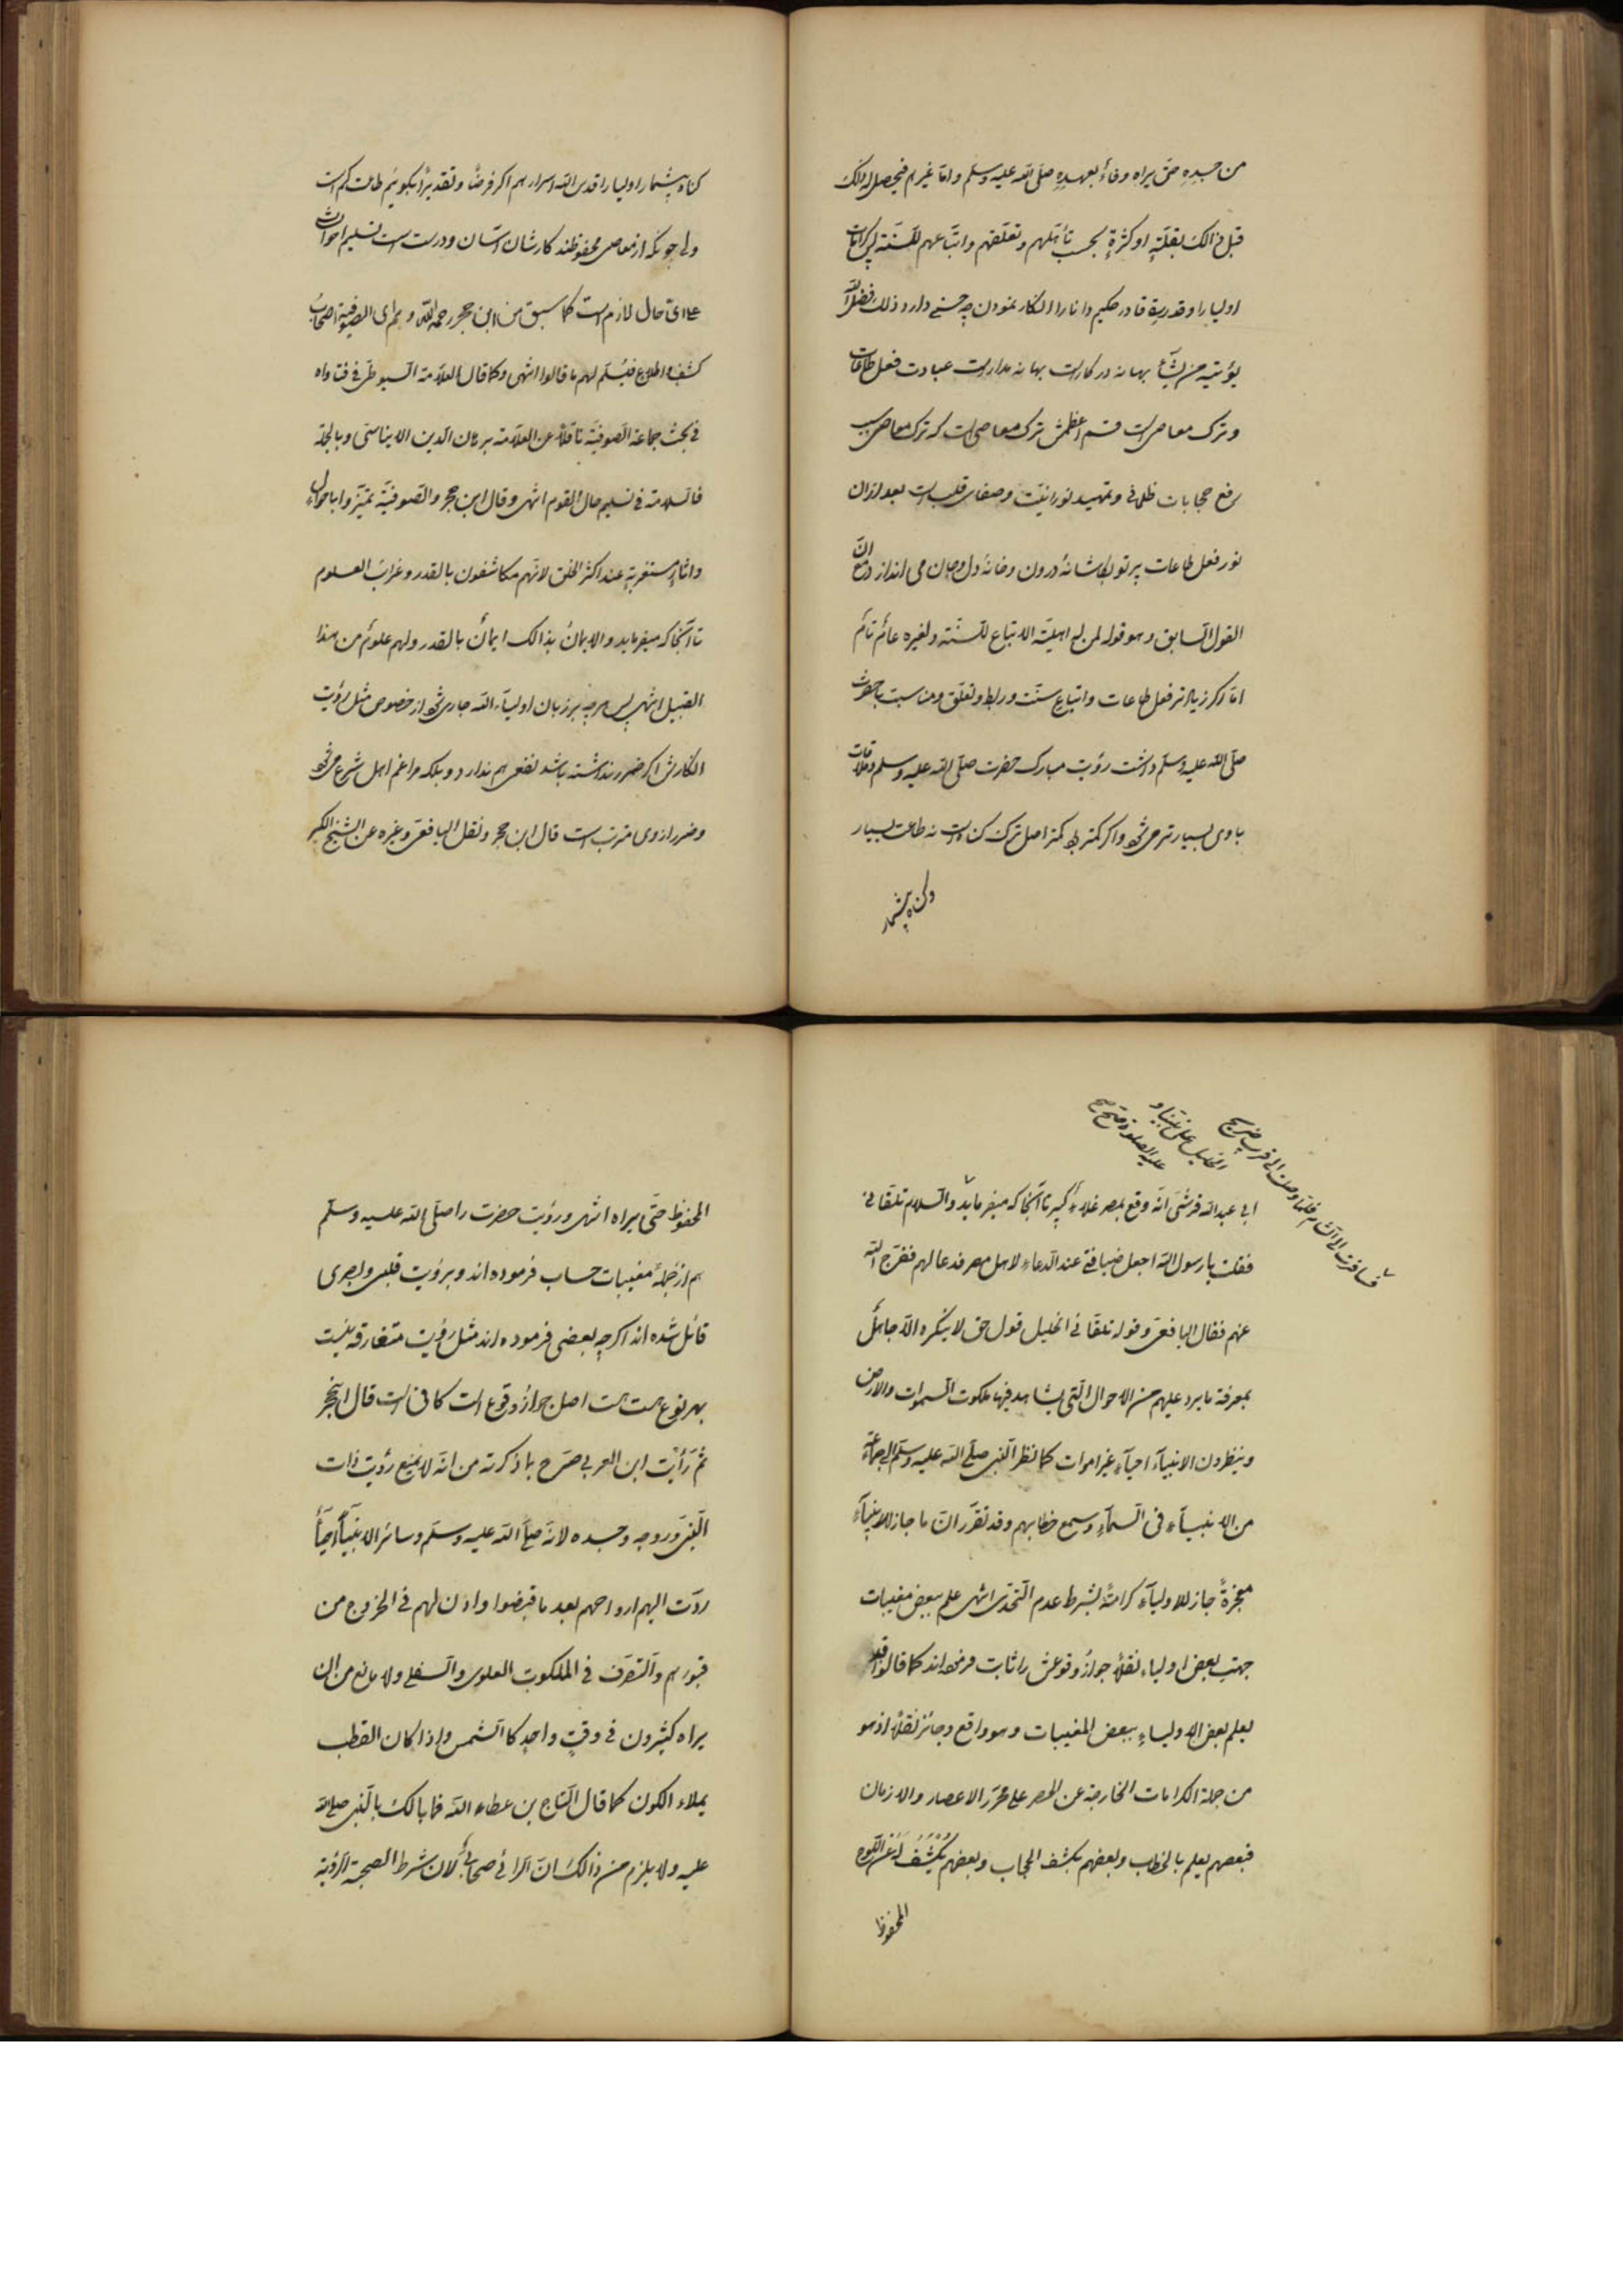 من جسده حتى يراه وفاءً بعهده صلى الله عليه وسلم واما غيرهم فيحصل لهم ذالك
قبل ذالك بقلّةٍ او كثرةٍ بحسب تأهّلهم وتعلّقهم واتّباعهم للسّنّة پس كرامات
اوليا را وقدرت قادر حكيم دانا را انكار نمودن چه حسنى دارد ذلك فضل الله
يؤتيه من يشآء بهانه در كار است بهانه مدار است عبادت فعل طاعات
وترك معاصى است قسم اعظمش ترك معاصى است كه ترك معاصى سبب
رفع حجابات ظلمانى وتمهيد نورانيّت وصفاى قلب است بعد از ان
نور فعل طاعات پرتو بكاشانهٔ درون وخانهٔ دل وجان مى اندازد مع انّ
القول السابق وهو قوله لمن له اهليّة الاتباع للسّنّة ولغيره عامٌ تامٌ
امّا اگر زيادتر فعل طاعات واتباع سنّت وربط وتعلّق ومناسبت با حضرت
صلّى الله عليه وسلّم داشت رؤيت مبارك حضرت صلّى الله عليه وسلم وملاقات
با وى بسيارتر مى شود واگر كمتر بود كمتر اصل ترك گناه است نه طاعت بسيار
وگناه بيشمار
گناه بيشمار اوليا را قدس الله اسرارهم اگر فرضًا وتقديرًا بگوئيم طاعت كم است
ولى چونكه از معاصى محفوظند كارشان آسان ودرست است تسليم احوالشان
على اىّ حال لازم است كما سبق من ابن حجر رحمه الله وهم اى الصوفية اصحاب
كشف واطلاع فيُسلّم لهم ما قالوا انتهى وكما قال العلّامة السيوطى فى فتاواه
فى بحث جماعة الصّوفيّة ناقلاً عن العلّامة برهان الدّين الابناسى وبالجملة
فالسلامة فى تسليم حال القوم انتهى وقال ابن حجر والصّوفيّة تميّزوا باحوالٍ
واثارٍ مستغربةٍ عند اكثر الخلق لانّهم مكاشفون بالقدر وغرائب العلوم
تا آنجا كه ميفرمايد والايمانُ بذالك ايمانٌ بالقدر ولهم علومٌ من هذا
القبيل انتهى پس هرچه بر زبان اوليآء الله جارى شود از خصوص مثل رؤيت
انكارش اگر ضرر نداشته باشد نفعى هم ندارد وبلكه مراغم اهل شرع مى شود
وضرر از وى مترتب است قال ابن حجر ونقل اليافعى وغيره عن الشيخ الكبير
فسافرت الى الشام فلمّا وصلت الى قرب ضريح
الخليل على نبيّنا و
عليه الصلوة صح
ابى عبد الله قرشىّ انّه وقع بمصر غلاءٌ كبير تا آنجا كه ميفرمايد والسلام تلقّانى
فقلت يا رسول الله اجعل ضيافتى عند الدّعاء لاهل مصر فدعا لهم ففرّج الله
عنهم فقال اليافعى وقوله تلقّانى الخليل قول حق لا ينكره الّا جاهلٌ
بمعرفة ما يرد عليهم من الاحوال الّتى يشاهد فيها ملكوت السموات والارض
وينظرون الانبيآء احيآء غير اموات كما نظر النّبى صلّى الله عليه وسلّم الى جماعة
من الانبيآء فى السّمآء وسمع خطابهم وقد تقرّر انّ ما جاز للانبيآء
معجزةً جاز للاوليآء كرامةً بشرط عدم التّحدّى انتهى علم ببعض مغيبات
جهت بعض اولياء نقلاً جواز وقوعش را ثابت فرموده اند كما قالوا قد
يعلم بعض الاولياء ببعض المغيبات وهو واقع وجائز نقلاً اذ هو
من جملة الكرامات الخارجة عن الحصر على ممرّ الاعصار والازمان
فبعضهم يعلم بالخطاب وبعضهم بكشف الحجاب وبعضهم يُكشف له عن اللّوح
المحفوظ
المحفوظ حتّى يراه انتهى ورؤيت حضرت را صلّى الله عليه وسلّم
هم از جملهٔ مغيبات حساب فرموده اند وبرؤيت قلبى وبصرى
قائل شده اند اگرچه بعضى فرموده اند مثل رؤيت متعارفه نيست
بهر نوع هست هست اصل جواز وقوع است كافى است قال ابن حجر
ثم رأيت ابن العربى صرّح بما ذكرته من انّه لا يمنع رؤيت ذات
النّبى وروحه وجسده لانّه صلّى الله عليه وسلّم وسائر الانبيآء احيآءٌ
ردّت اليهم ارواحهم بعد ما قبضوا واذن لهم فى الخروج من
قبورهم والتّصرّف فى الملكوت العلوى والسّفلى ولا مانع من ان
يراه كثيرون فى وقتٍ واحدٍ كالشّمس واذا كان القطب
يملاء الكون كما قال التّاج بن عطاء الله فما بالك بالنّبى صلى الله
عليه ولا يلزم من ذالك انّ الرائى صحابىٌ لانّ شرط الصحبة الرّؤية